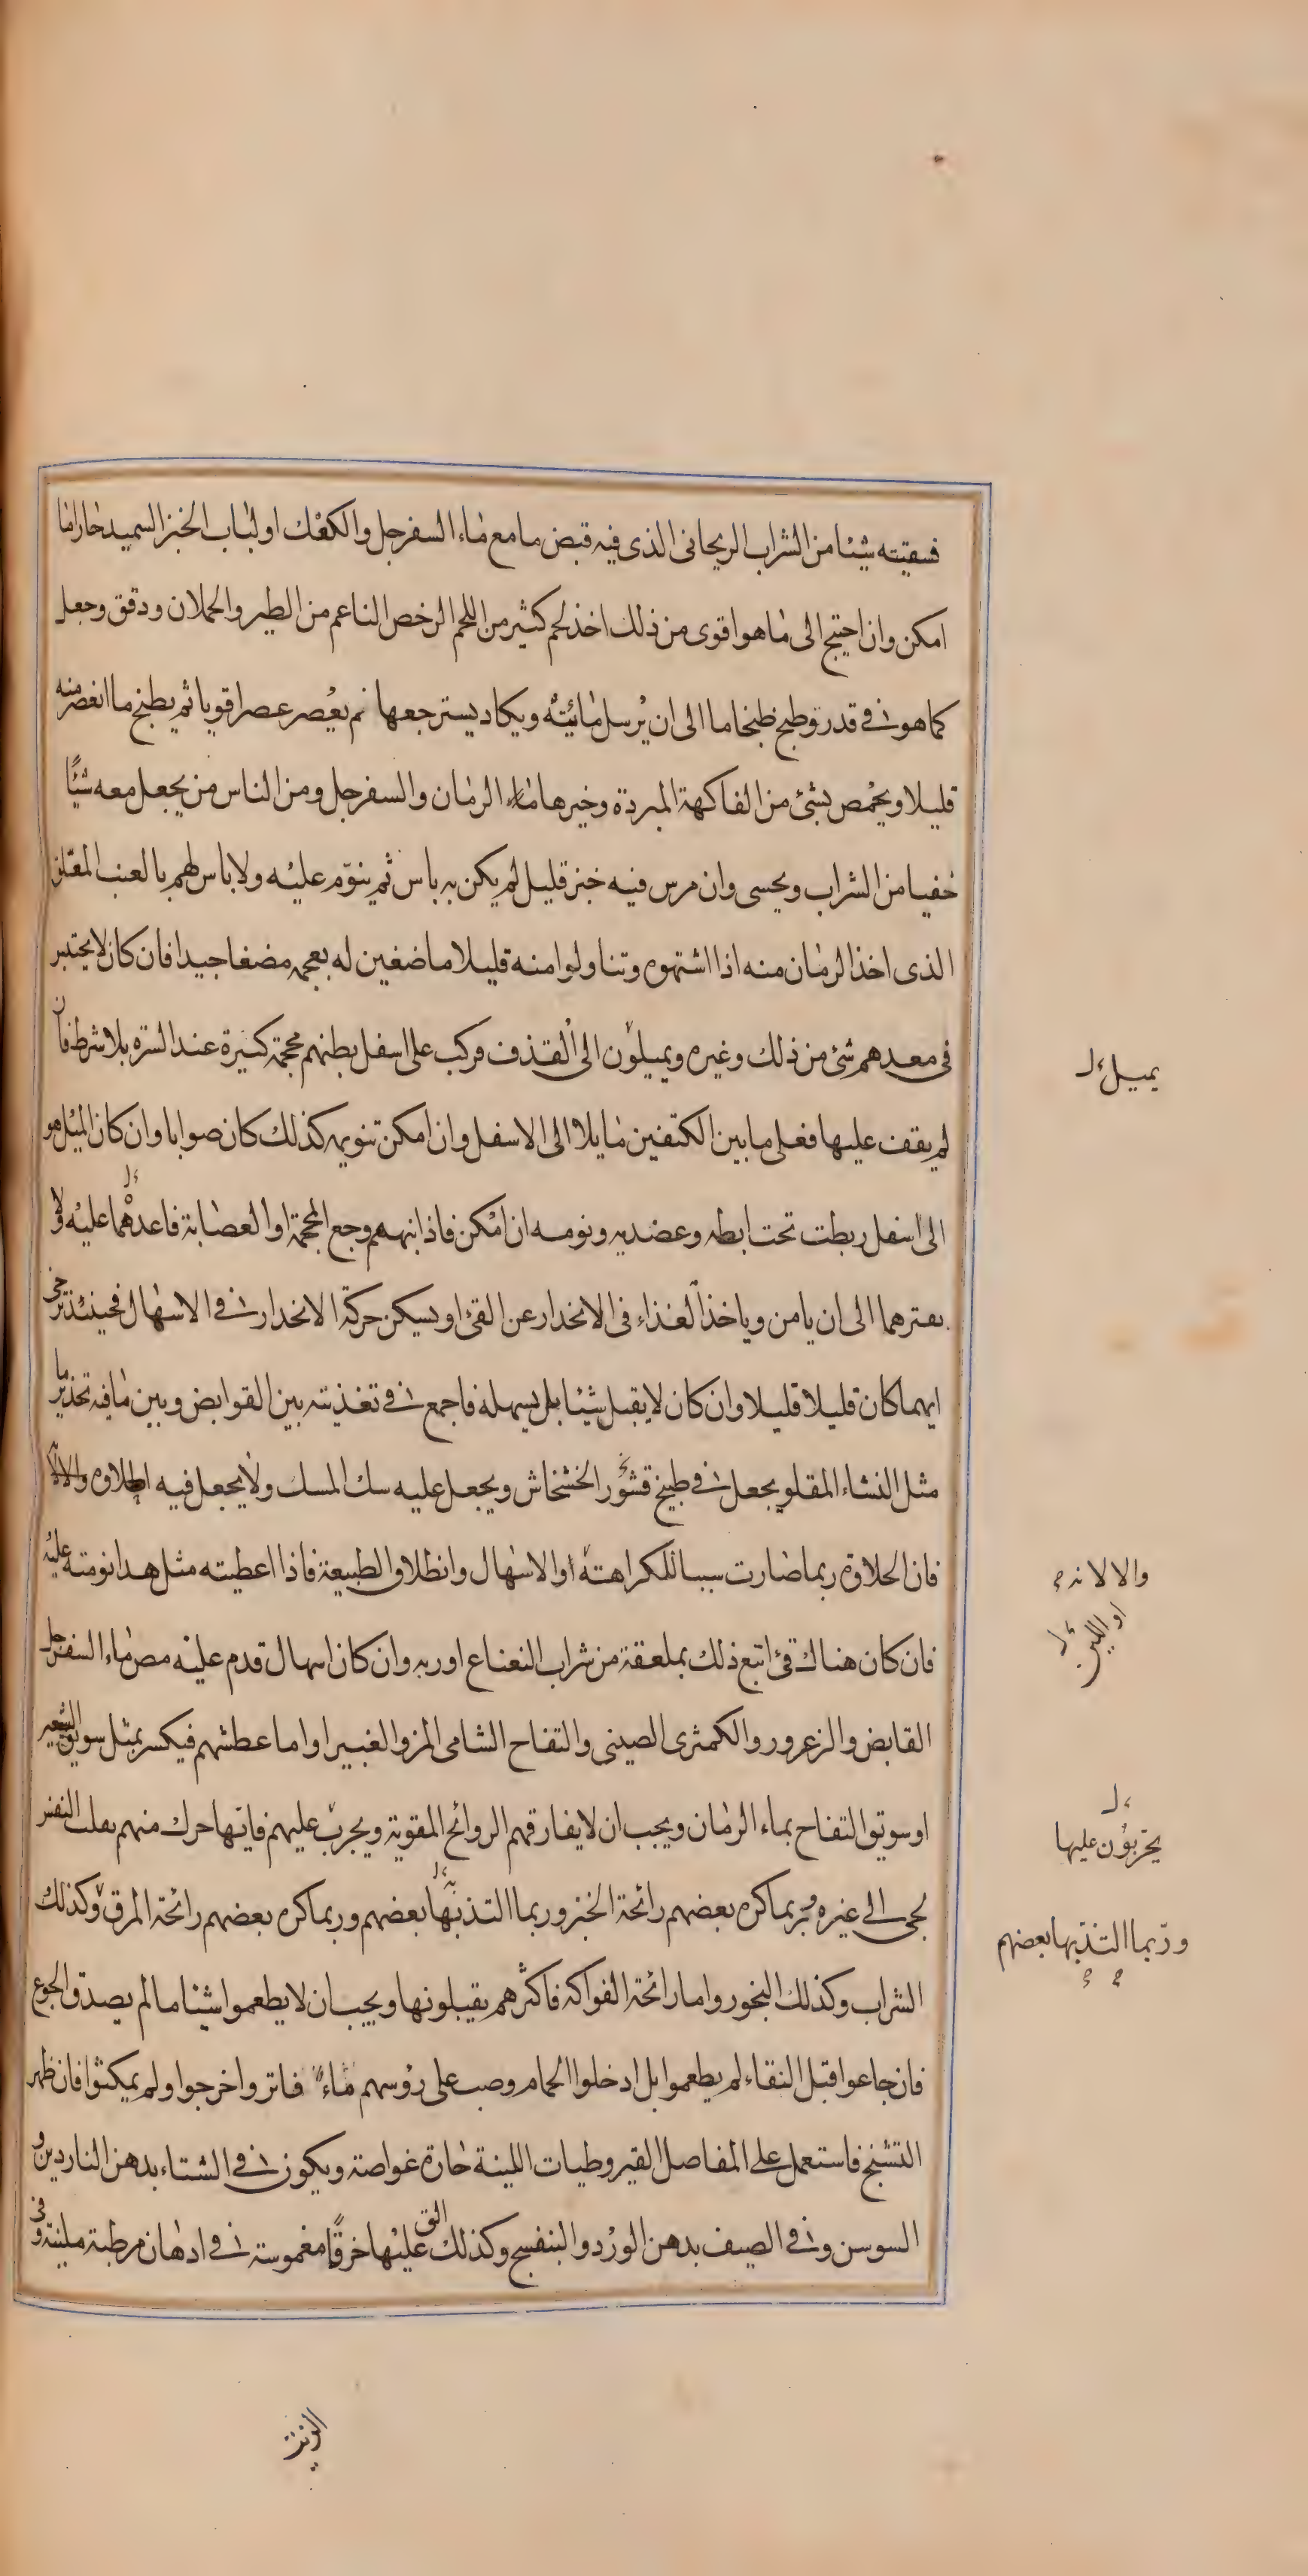 فسقيته شيئا من الشراب الريحانى الذى فيه قبض ما مع ماء السفرجل والكعك او لباب الخبز السميد حارا ما
امكن وان احتيج الى ما هو اقوى من ذلك اخذ لحم كثير من اللحم الرخص الناعم من الطير والحملان ودقق وجعل
كما هو فى قدر وطبخ طبخا ما الى ان يرسل مائيته ويكاد يسترجعها ثم يعصر عصرا قويا ثم يطبخ ما انعصر منه
قليلا ويحمص بشئ من الفاكهة المبردة وخيرها ماء الرمان والسفرجل ومن الناس من يجعل معه شيئا
خفيا من الشراب ويحسى وان مرس فيه خبز قليل لم يكن به باس ثم ينوم عليه ولا باس لهم بالعنب المعلق
الذى اخذ الزمان منه اذا اشتهوه وتناولوا منه قليلا ماضغين له بعجمه مضغا جيدا فان كان لا يحتبر
فى معدهم شئ من ذلك وغيره ويميلون الى القذف فركب على اسفل بطنهم محجمة كبيرة عند السرة بلا شرط فان
لم يقف عليها فعلى ما بين الكتفين مايلا الى الاسفل وان امكن تنويمه كذلك كان صوابا وان كان الميل هو
الى اسفل ربطت تحت ابطه وعضديه ونومه ان امكن فاذا نبههم وجع المحجمة او العصابة فاعدهما عليه ولا
يفترهما الى ان يامن وياخذ الغذاء فى الانحدار عن القئ او يسكن حركة الانحدار فى الاسهال فحينئذ ترخى
ايهما كان قليلا قليلا وان كان لا يقبل شيئا بل يسهله فاجمع فى تغذيته بين القوابض وبين ما فيه تخدير ما
مثل النشاء المقلو يجعل فى طبيخ قشور الخشخاش ويجعل عليه سك المسك ولا يجعل فيه الحلاوة والالانه
فان الحلاوة ربما صارت سببا للكراهته او الاسهال وانطلاق الطبيعة فاذا اعطيته مثل هذا نومته عليه
فان كان هناك قئ اتبع ذلك بملعقة من شراب النعناع او ربه وان كان اسهال قدم عليه مص ماء السفرجل
القابض والزعرور والكمثرى الصينى والتفاح الشامى المز والغبيرا واما عطشهم فيكسر بمثل سويق الشعير
او سويق التفاح بماء الرمان ويجب ان لا يفارقهم الروائح المقوية ويجرب عليهم فايتها حرك منهم بقلب النفس
نحى الى غيره فربما كره بعضهم رائحة الخبز وربما التذ بها بعضهم وربما كره بعضهم رائحة المرق وكذلك
الشراب وكذلك البخور واما رائحة الفواكه فاكثرهم يقبلونها ويجب ان لا يطعموا شيئا ما لم يصدق الجوع
فان جاعوا قبل النقاء لم يطعموا بل ادخلوا الحمام وصب على رؤسهم ماء فاتر واخرجوا ولم يمكثوا فان ظهر
التشنج فاستعمل على المفاصل القيروطيات اللينة حارة غواصة ويكون فى الشتاء بدهن الناردين و
السوسن وفى الصيف بدهن الورد والبنفسج وكذلك الق عليها خرقا مغموسة فى ادهان مرطبة ملينة وفى
يميل
والالانه
او اللين
يجربون عليها
وربما التذ بها بعضهم
الزيت